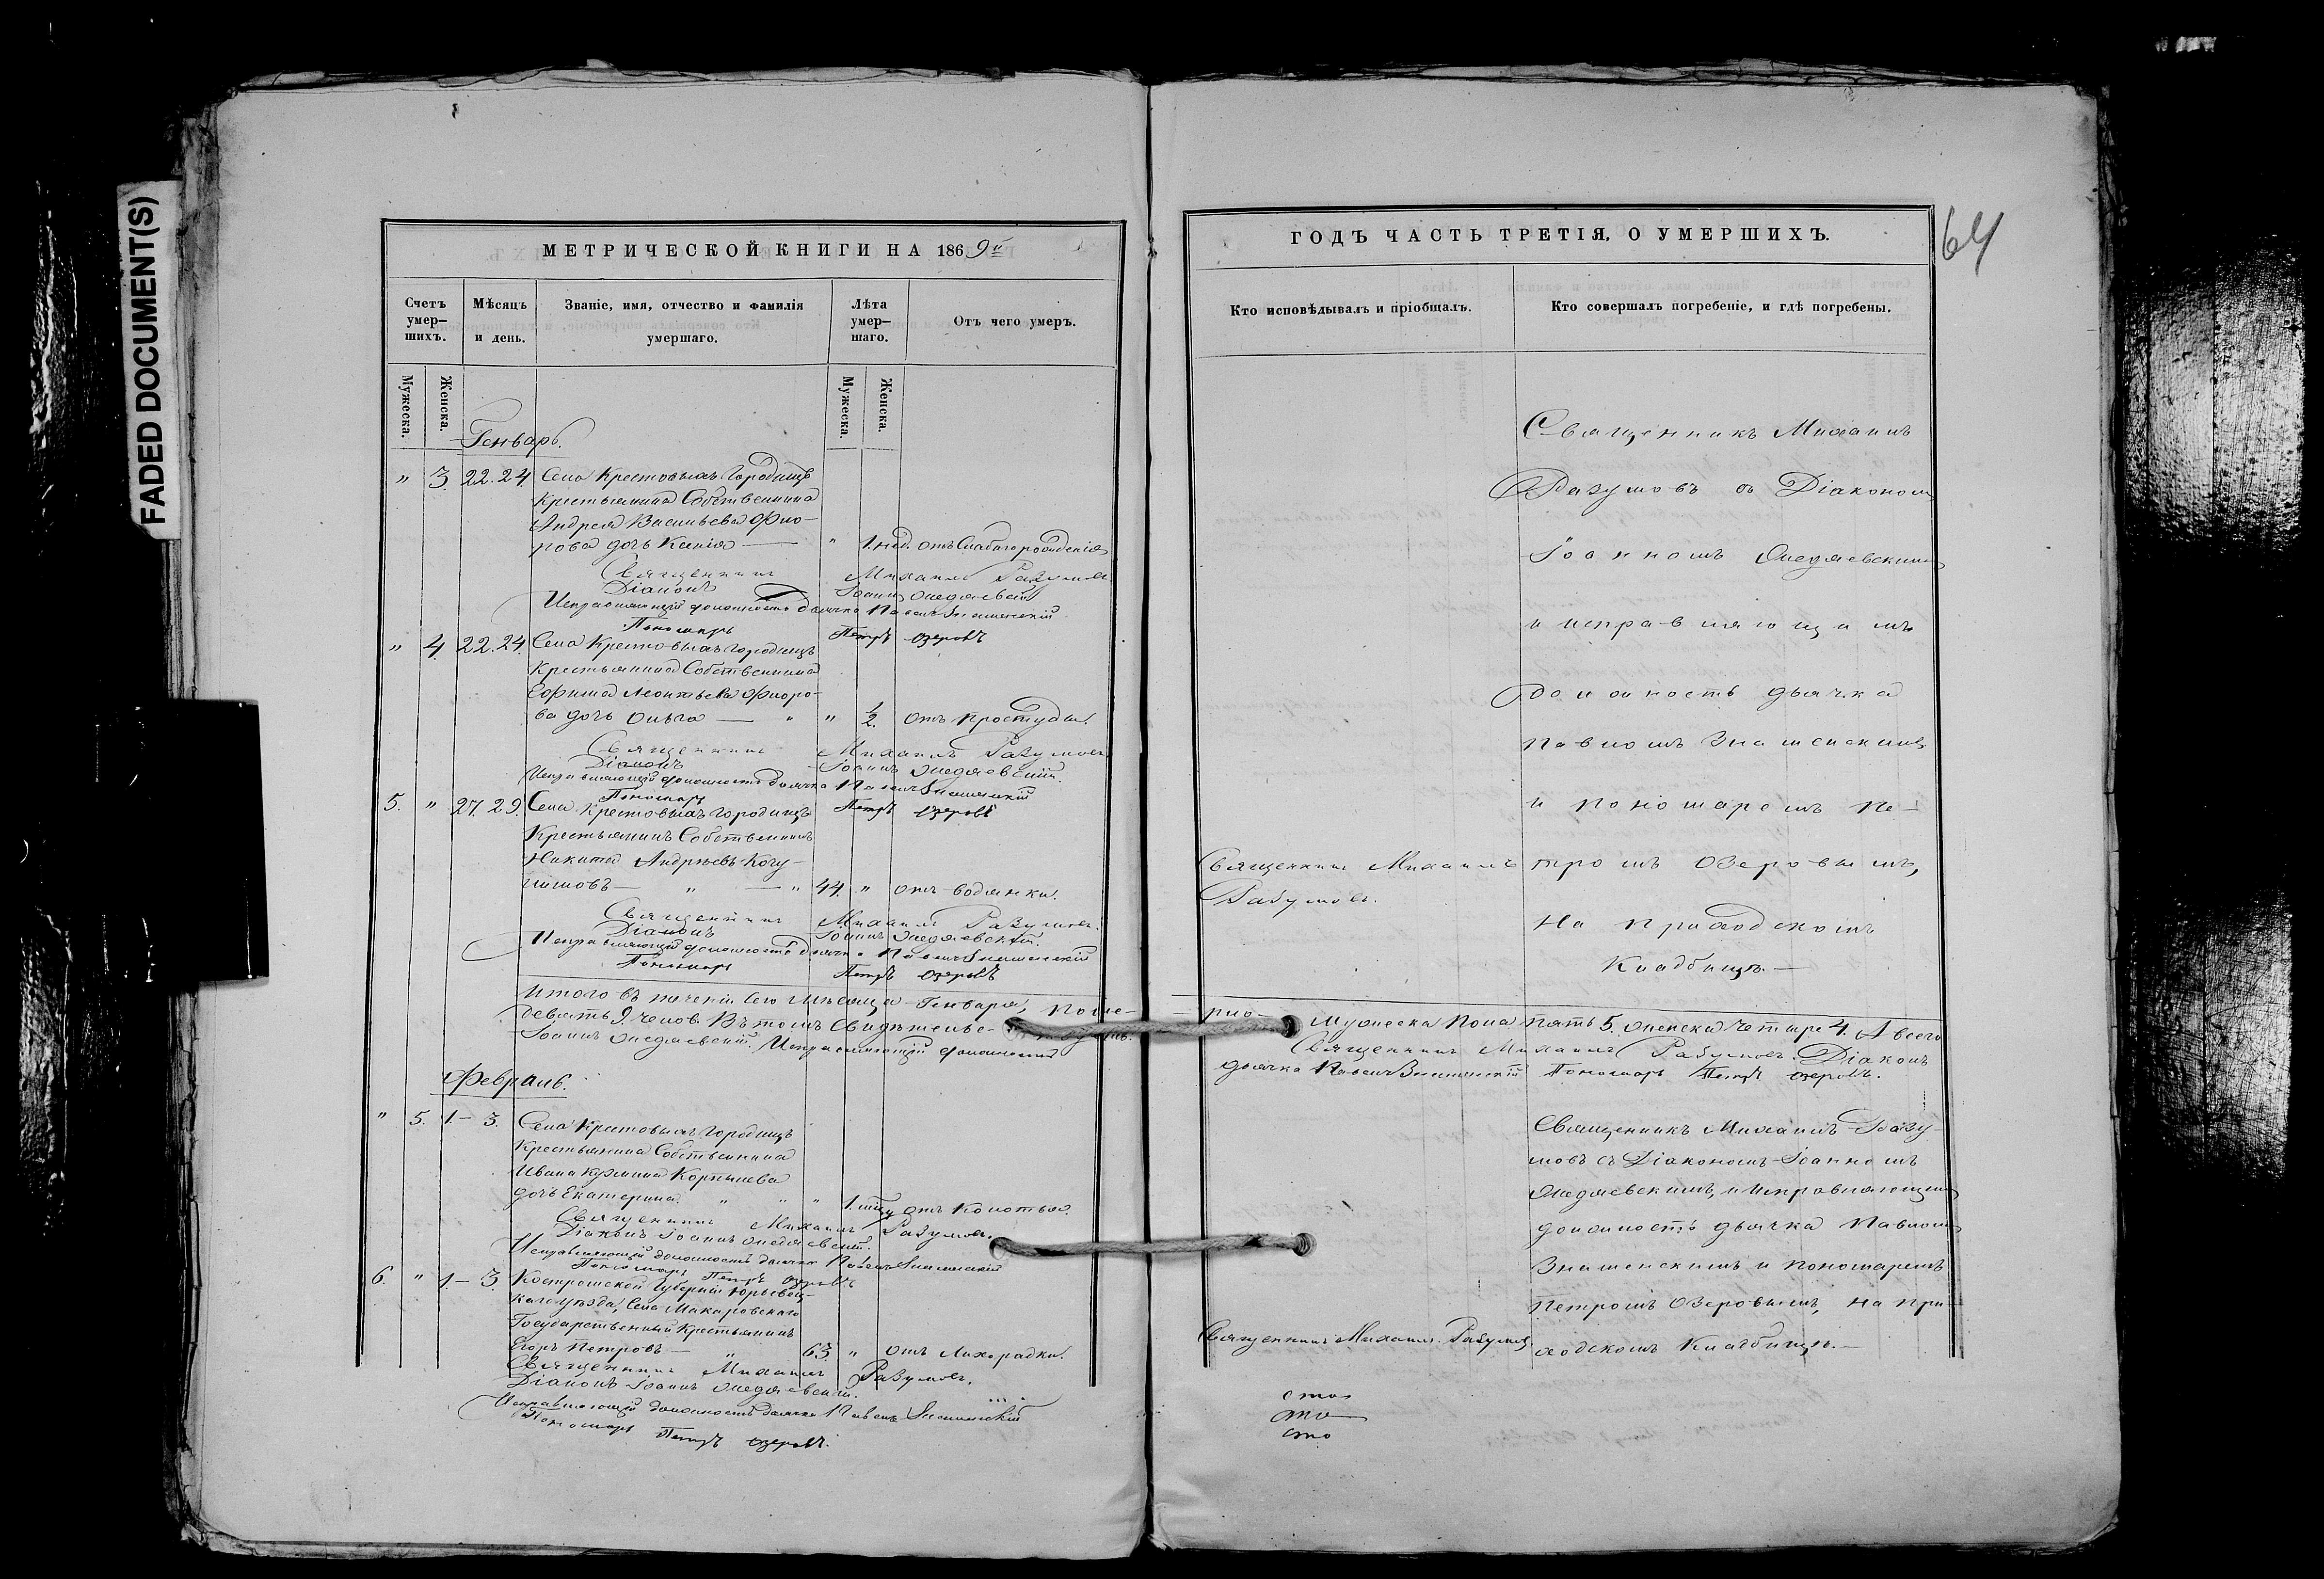 FADED DOCUMENT(S)
МЕТРИЧЕСКОЙ КНИГИ НА 1869й
Счетъ умер-шихъ.
Мѣсяцъ и день.
Званіе, имя, отчество и фамилія умершаго.
Лѣта умер-шаго.
Отъ чего умеръ.
Мужеска.
Женска.
Мужеска.
Женска.
Генварь.
" 3. 22. 24. Села Крестовыхъ Городищъ
Крестьянина Собственника
Андрея Васильева Фло-
рова дочь Ксенія — " 1. нед. отъ Слабагорожденія
Священникъ Михаилъ Разумовъ
Діаконъ Іоаннъ
Исправляющій должность Дьячка Павелъ Знаменскій
Пономарь Петръ Озеровъ
" 4. 22. 24 Села Крестовыхъ Городищъ
Крестьянина Собственника
Ефима Леонтьева Флоро-
ва дочь Ольга — " " 1/2. отъ простуды.
Священникъ Михаилъ Разумовъ
Діаконъ Іоаннъ
Исправляющій должность Дьячка Павелъ Знаменскій
Пономарь Петръ Озеровъ
5. " 27. 29. Села Крестовыхъ Городищъ
Крестьянинъ Собственникъ
Никита Андрѣевъ
— " — " 44. " отъ водянки.
Священникъ Михаилъ Разумовъ.
Діаконъ Іоаннъ
Исправляющій должность Дьячка Павелъ Знаменскій
Пономарь Петръ Озеровъ
Итого въ теченіи сего мѣсяца Генваря, поме-
девять 9. челов. Въ томъ Свидѣтельс-
Іоаннъ Исправляющій должность
Февраль.
" 5. 1 — 3. Села Крестовыхъ Городищъ
Крестьянина Собственника
Ивана Кузмина Корнышева
дочь Екатерина. " " " 1. отъ Колотья.
Священникъ Михаилъ Разумовъ.
Діаконъ Іоаннъ
Исправляющій должность Дьячка Павелъ Знаменскій
Пономарь Петръ Озеровъ
6. " 1 — 3. Костромской Губерніи Юрьевец-
каго уѣзда, Села Макаровскаго
Государственный Крестьянинъ
Егоръ Петровъ — " 63. " отъ Лихорадки.
Священникъ Михаилъ Разумовъ.
Діаконъ Іоаннъ
Исправляющій должность Дьячка Павелъ Знаменскій
Пономарь Петръ Озеровъ.
ГОДЪ ЧАСТЬ ТРЕТІЯ, О УМЕРШИХЪ.
64
Кто исповѣдывалъ и пріобщалъ.
Кто совершалъ погребеніе, и гдѣ погребены.
Священникъ Михаилъ
Разумовъ съ Діакономъ
Іоанномъ
и исправляющимъ
должность дьячка
Павломъ Знаменскимъ
и пономаремъ Пе-
Священникъ Михаилъ тромъ Озеровымъ,
Разумовъ.
На приходскомъ
Кладбищѣ. —
-рло Мужеска пола пять 5. женска четыре 4. А всего
Священникъ Михаилъ Разумовъ. Діаконъ
дьячка Павелъ Знаменскій Пономарь Петръ Озеровъ.
Священникъ Михаилъ Разу-
мовъ съ Діакономъ Іоанномъ
и исправляющимъ
должность дьячка Павломъ
Знаменскимъ и пономаремъ
Петромъ Озеровымъ, на при-
Священникъ Михаилъ Разумовъ
ходскомъ Кладбищѣ. —